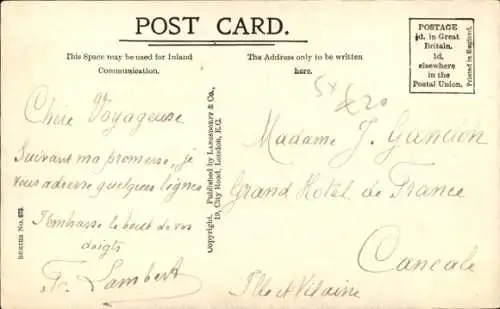 POST CARD.
This Space may be used for Inland
Communication.
The Address only to be written
here.
POSTAGE
½d. in Great
Britain.
1d.
elsewhere
in the
Postal Union.
Printed in England.
Chère Voyageuse
Suivant ma promesse, je
vous adresse quelques lignes
J'embrasse le bout de vos
doigts
F. Lambert
SERIES No. 675.
Copyright. Published by LANGSDORFF & Co.,
19, City Road, London, E.C.
Madame J.
Grand Hotel de France
Cancale
Ille et Vilaine